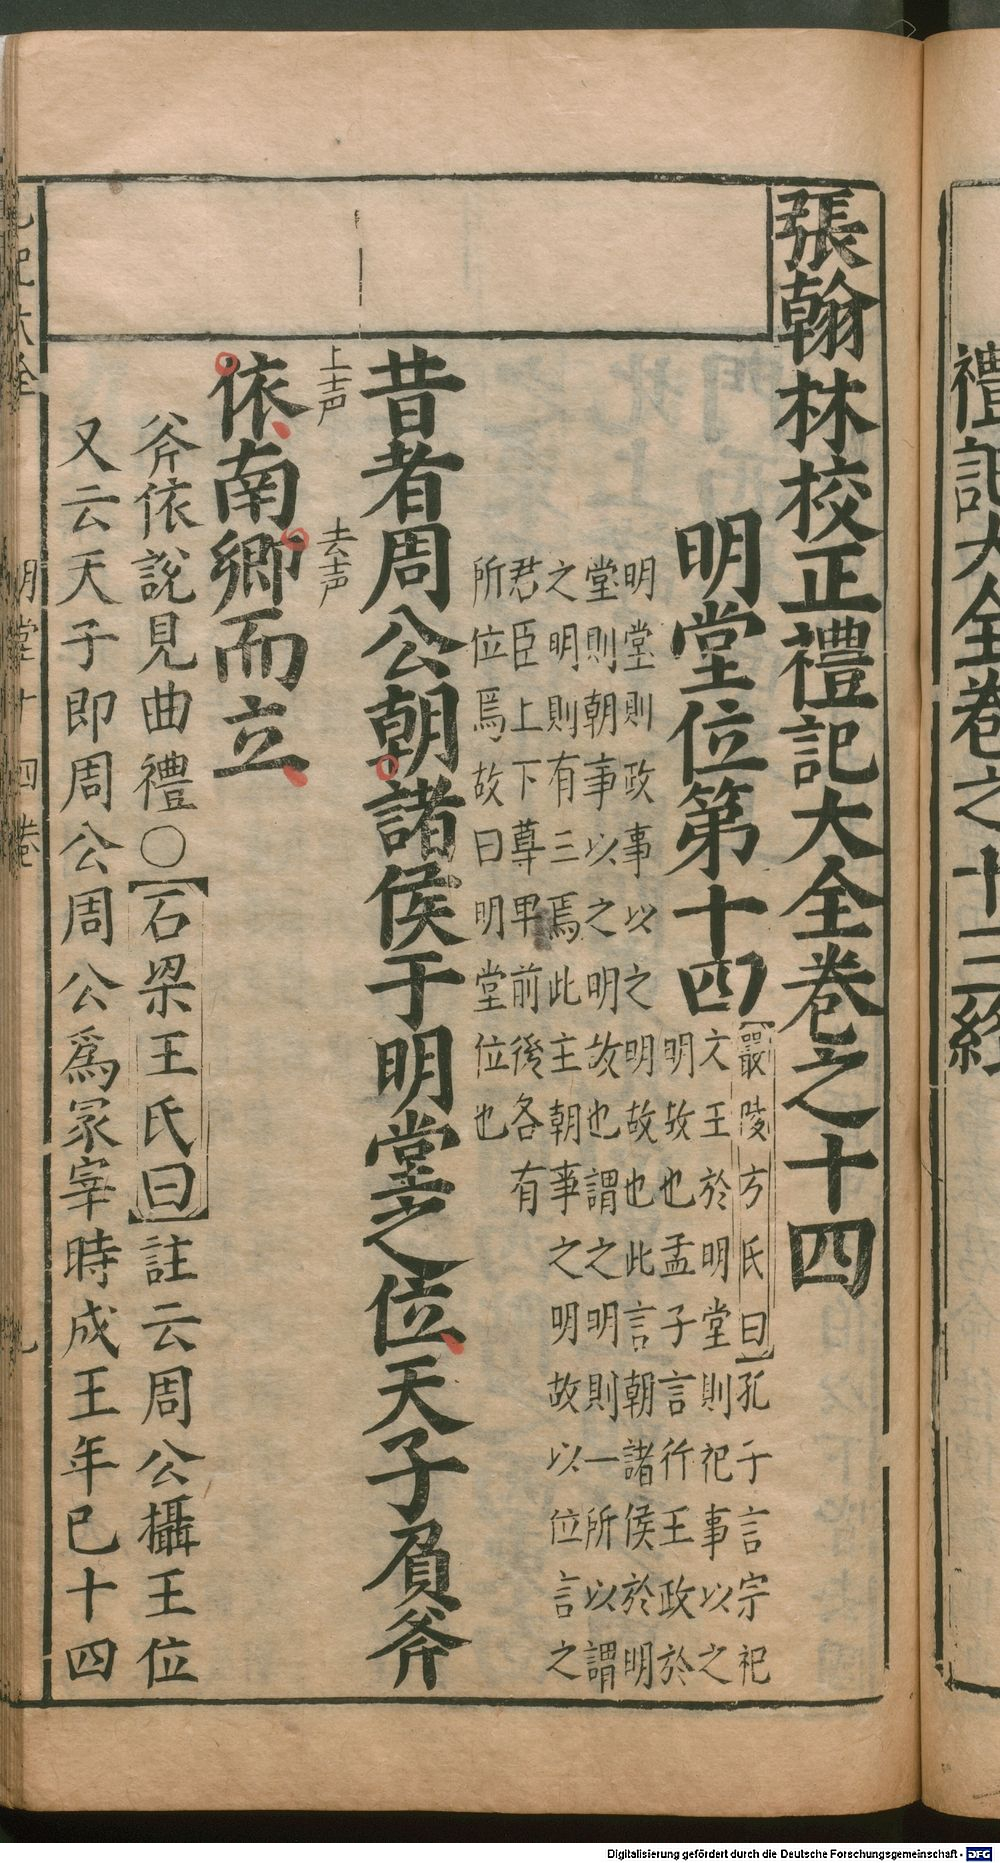 禮記大全卷之十三終
張翰林校正禮記大全卷之十四
明堂位第十四
嚴陵方氏曰孔子言宗祀
文王於明堂則祀事以之
明故也孟子言行王政於
明堂則政事以之明故也此言朝諸侯於明
堂則朝事以之明故也謂之明則一所以謂
之明則有三焉此主朝事之明故以位言之
君臣上下尊卑前後各有
所位焉故曰明堂位也
昔者周公朝諸侯于明堂之位天子負斧
上声 去声
依南鄉而立
斧依說見曲禮○石梁王氏曰註云周公攝王位
又云天子即周公周公爲冢宰時成王年已十四
明堂十四卷
Digitalisierung gefördert durch die Deutsche Forschungsgemeinschaft - DFG